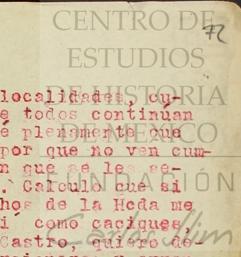 CENTRO DE
ESTUDIOS
DE HISTORIA
DE MEXICO
FUNDACIÓN
Carlos Slim
72
localidades, cu-
e todos continúan
é plenamente que
por que no ven cum-
n que se les se-
. Calculo que si
hos de la Hcda me
i como caciques,
Castro, quiero de-